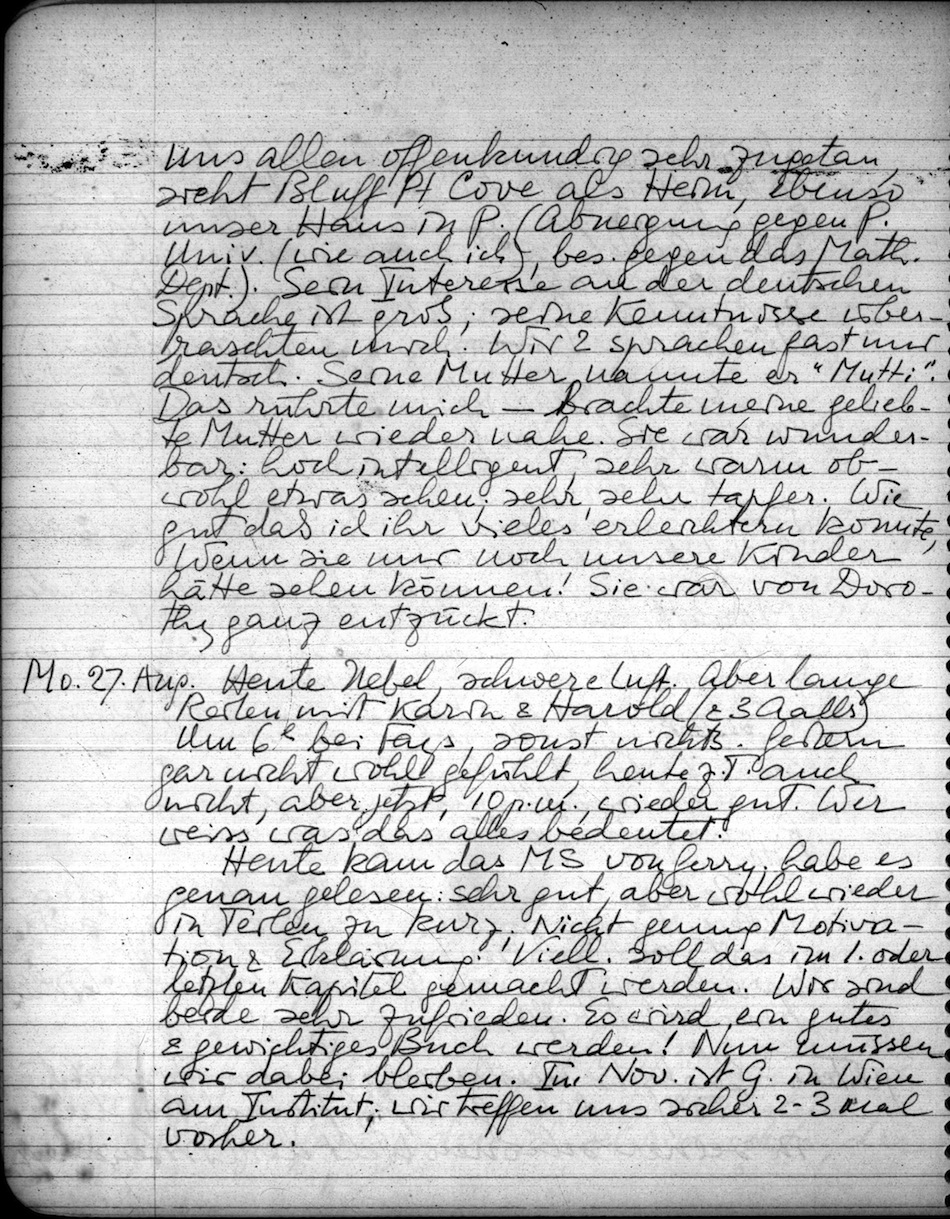 uns allen offenkundig sehr zugetan,
sieht Bluff Pt Cove als Heim, ebenso
unser Haus in P. (Abneigung gegen P.
Univ. (wie auch ich), bes. gegen das Math.
Dept.). Sein Interesse an der deutschen
Sprache ist groß; seine Kenntnisse über-
raschten mich. Wir 2 sprachen fast nur
deutsch. Seine Mutter nannte er "Mutti".
Das rührte mich — brachte meine gelieb-
te Mutter wieder nahe. Sie war wunder-
bar: hochintelligent, sehr warm ob-
wohl etwas scheu, sehr, sehr tapfer. Wie
gut daß ich ihr vieles erleichtern konnte,
Wenn sie nur noch unsere Kinder
hätte sehen können! Sie war von Doro-
thy ganz entzückt.
Mo. 27. Aug. Heute Nebel, schwere Luft. Aber lange
Reiten mit Karin & Harold (& 3 Aalls)
Um 6h bei Fays, sonst nichts. Gestern
gar nicht wohl gefühlt, heute z.T. auch
nicht, aber jetzt, 10 p.m., wieder gut. Wer
weiss was das alles bedeutet!
Heute kam das MS von Gerry, habe es
genau gelesen: sehr gut, aber wohl wieder
in Teilen zu kurz, Nicht genug Motiva-
tion & Erklärung. Viell. soll das im 1. oder
letzten Kapitel gemacht werden. Wir sind
beide sehr zufrieden. Es wird ein gutes
& gewichtiges Buch werden! Nun müssen
wir dabei bleiben. Im Nov. ist G. in Wien
am Institut; wir treffen uns sicher 2-3 mal
vorher.